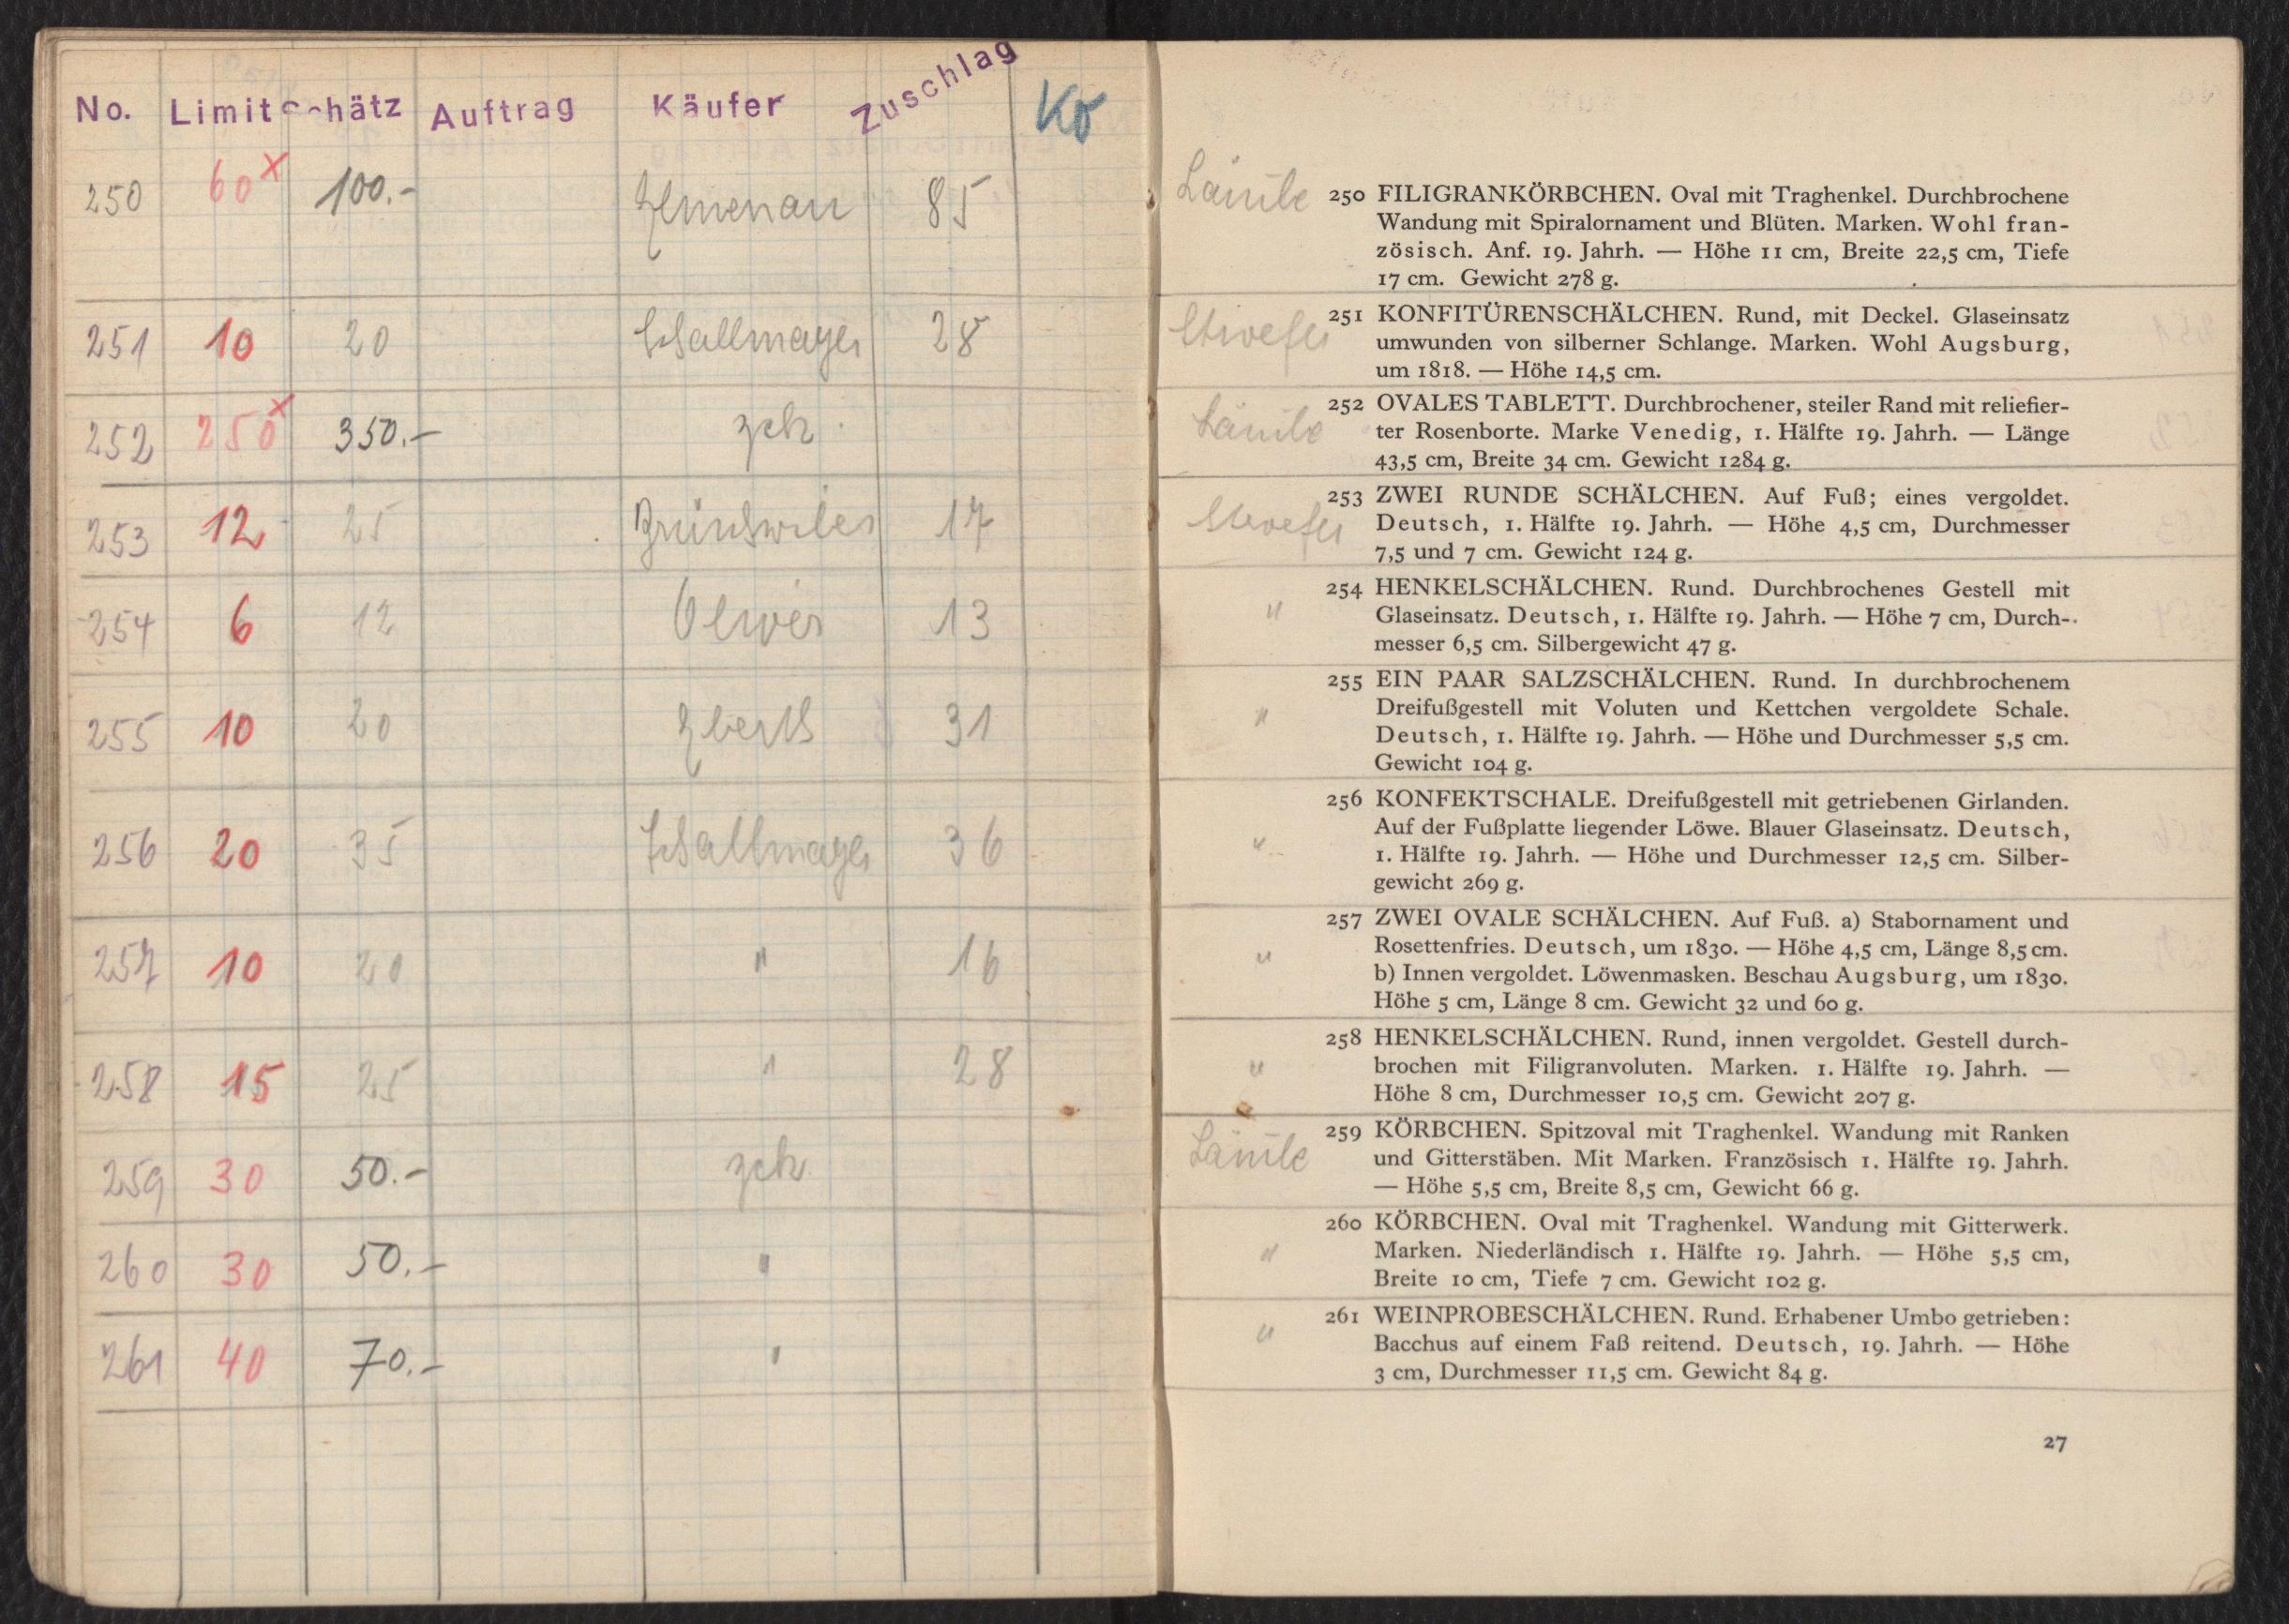 No. Limit Schätz Auftrag Käufer Zuschlag Kö
250 60x 100.- Ilmenau 85
251 10 20 Schallmayer 28
252 250x 350.- zck
253 12 25 17
254 6 12 13
255 10 20 31
256 20 35 Schallmayer 36
257 10 20 " 16
258 15 25 " 28
259 30 50.- zck
260 30 50.- "
261 40 70.- "
Läuile
250 FILIGRANKÖRBCHEN. Oval mit Traghenkel. Durchbrochene
Wandung mit Spiralornament und Blüten. Marken. Wohl fran-
zösisch. Anf. 19. Jahrh. — Höhe 11 cm, Breite 22,5 cm, Tiefe
17 cm. Gewicht 278 g.
251 KONFITÜRENSCHÄLCHEN. Rund, mit Deckel. Glaseinsatz
umwunden von silberner Schlange. Marken. Wohl Augsburg,
um 1818. — Höhe 14,5 cm.
Läuile
252 OVALES TABLETT. Durchbrochener, steiler Rand mit reliefier-
ter Rosenborte. Marke Venedig, 1. Hälfte 19. Jahrh. — Länge
43,5 cm, Breite 34 cm. Gewicht 1284 g.
253 ZWEI RUNDE SCHÄLCHEN. Auf Fuß; eines vergoldet.
Deutsch, 1. Hälfte 19. Jahrh. — Höhe 4,5 cm, Durchmesser
7,5 und 7 cm. Gewicht 124 g.
"
254 HENKELSCHÄLCHEN. Rund. Durchbrochenes Gestell mit
Glaseinsatz. Deutsch, 1. Hälfte 19. Jahrh. — Höhe 7 cm, Durch-
messer 6,5 cm. Silbergewicht 47 g.
"
255 EIN PAAR SALZSCHÄLCHEN. Rund. In durchbrochenem
Dreifußgestell mit Voluten und Kettchen vergoldete Schale.
Deutsch, 1. Hälfte 19. Jahrh. — Höhe und Durchmesser 5,5 cm.
Gewicht 104 g.
"
256 KONFEKTSCHALE. Dreifußgestell mit getriebenen Girlanden.
Auf der Fußplatte liegender Löwe. Blauer Glaseinsatz. Deutsch,
1. Hälfte 19. Jahrh. — Höhe und Durchmesser 12,5 cm. Silber-
gewicht 269 g.
"
257 ZWEI OVALE SCHÄLCHEN. Auf Fuß. a) Stabornament und
Rosettenfries. Deutsch, um 1830. — Höhe 4,5 cm, Länge 8,5 cm.
b) Innen vergoldet. Löwenmasken. Beschau Augsburg, um 1830.
Höhe 5 cm, Länge 8 cm. Gewicht 32 und 60 g.
"
258 HENKELSCHÄLCHEN. Rund, innen vergoldet. Gestell durch-
brochen mit Filigranvoluten. Marken. 1. Hälfte 19. Jahrh. —
Höhe 8 cm, Durchmesser 10,5 cm. Gewicht 207 g.
Läuile
259 KÖRBCHEN. Spitzoval mit Traghenkel. Wandung mit Ranken
und Gitterstäben. Mit Marken. Französisch 1. Hälfte 19. Jahrh.
— Höhe 5,5 cm, Breite 8,5 cm, Gewicht 66 g.
"
260 KÖRBCHEN. Oval mit Traghenkel. Wandung mit Gitterwerk.
Marken. Niederländisch 1. Hälfte 19. Jahrh. — Höhe 5,5 cm,
Breite 10 cm, Tiefe 7 cm. Gewicht 102 g.
"
261 WEINPROBESCHÄLCHEN. Rund. Erhabener Umbo getrieben:
Bacchus auf einem Faß reitend. Deutsch, 19. Jahrh. — Höhe
3 cm, Durchmesser 11,5 cm. Gewicht 84 g.
27